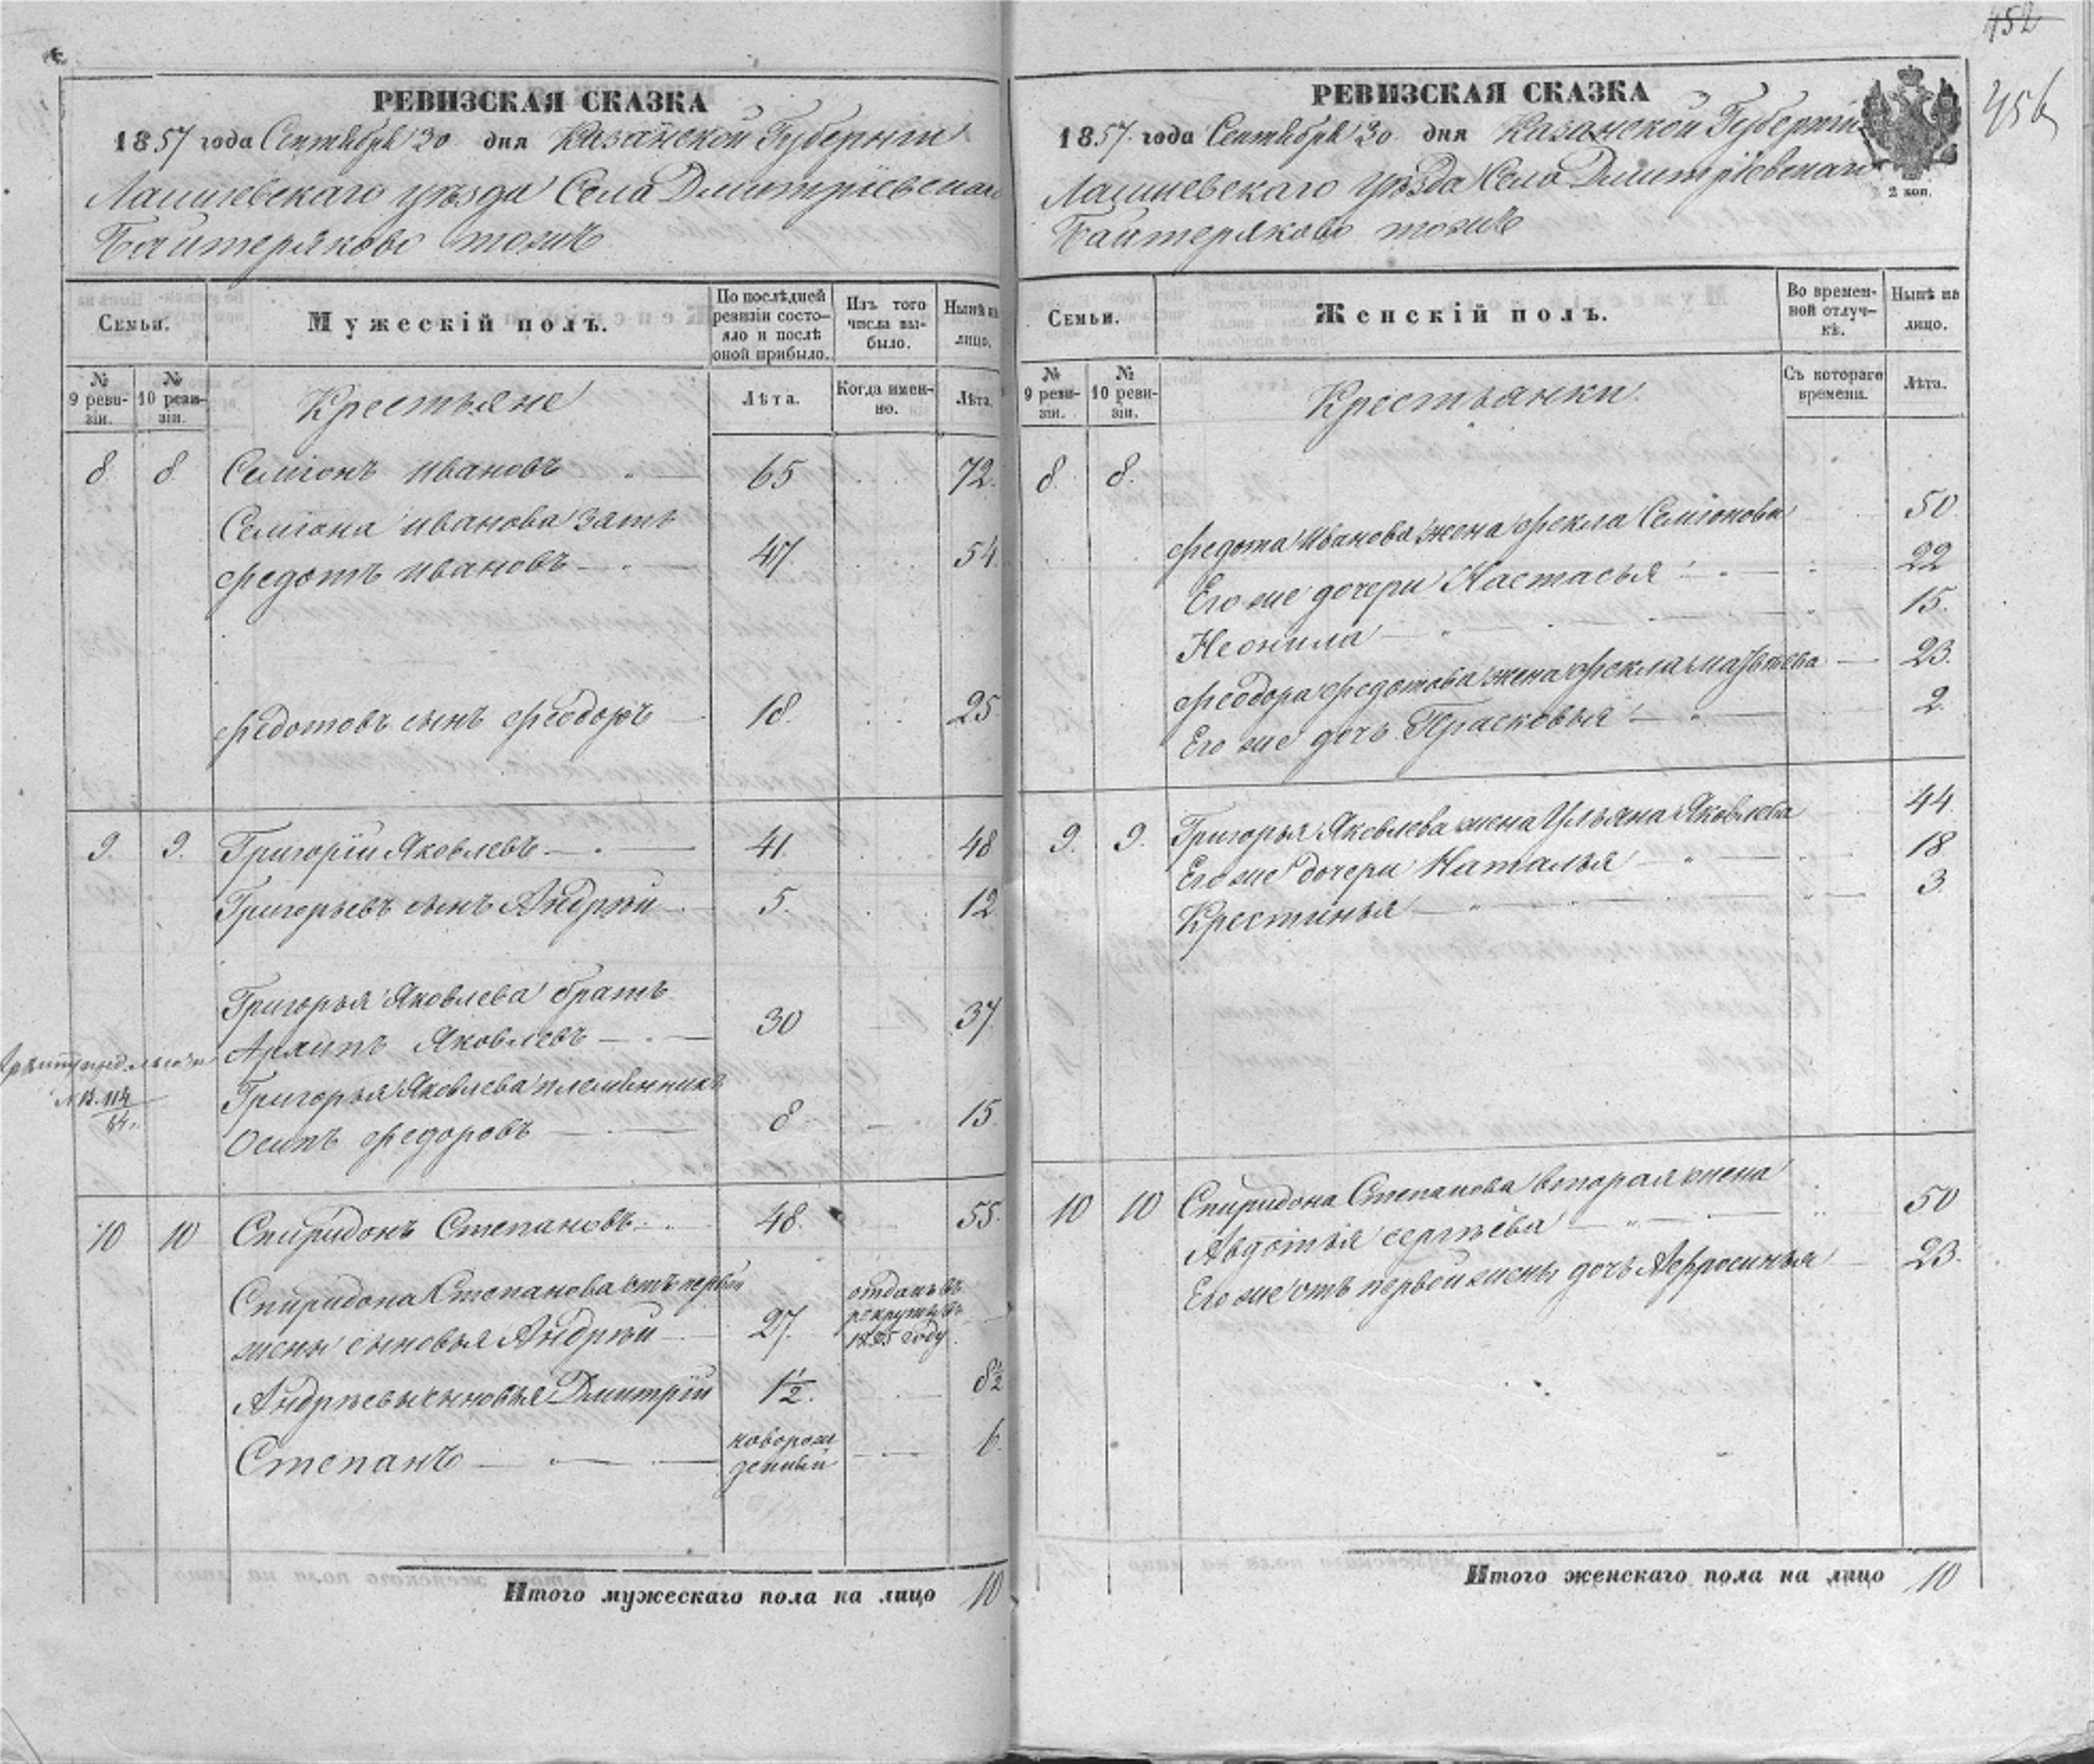 452
456
РЕВИЗСКАЯ СКАЗКА
1857 года Сентября 30 дня Казанской Губернiи
Лаишевскаго уѣзда Села Дмитрiевскаго
Байтеряково тожъ
Семьи.
Мужескiй полъ.
По послѣдней ревизiи состо-
яло и послѣ
оной прибыло.
Изъ того
числа вы-
было.
Нынѣ на
лицо.
№
9 реви-
зiи.
№
10 реви-
зiи.
Крестьяне
Лѣта.
Когда имен-
но.
Лѣта.
8 8 Семiонъ Ивановъ 65 72
Семiона Иванова зять
Федотъ Ивановъ 47 54
Федотовъ сынъ Феодоръ 18 25
9. 9. Григорiй Яковлевъ 41 48
Григорьевъ сынъ Андрѣй 5. 12
Григорья Яковлева братъ
Архипъ Яковлевъ 30 37
Григорья Яковлева племянникъ
Осипъ Федоровъ 8 15
№ 114
10 10 Спиридонъ Степановъ 48 55
Спиридона Степанова отъ первой
жены сыновья Андрѣй 27 отданъ въ
рекруты въ
1855 году
Андрѣевы сыновья Дмитрiй 1½ 8½
Степанъ новорож
денный 6
Итого мужескаго пола на лицо 10
РЕВИЗСКАЯ СКАЗКА
1857 года Сентября 30 дня Казанской Губернiи
Лаишевскаго уѣзда Села Дмитрiевскаго
Байтеряково тожъ
2 коп.
Семьи.
Женскiй полъ.
Во времен-
ной отлуч-
кѣ.
Нынѣ на
лицо.
№
9 реви-
зiи.
№
10 реви-
зiи.
Крестьянки
Съ котораго
времени.
Лѣта.
8. 8.
Федота Иванова жена Фекла Семiонова 50
Его же дочери Настасья 22
Неонила 15.
Феодора Федотова жена Фекла Матвѣева 23.
Его же дочь Прасковья 2
9. 9. Григорья Яковлева жена Ульяна Яковлева 44
Его же дочери Наталья 18
Крестинья 3
10 10 Спиридона Степанова вторая жена
Авдотья Сергѣева 50
Его же отъ первой жены дочь Афросинья 23.
Итого женскаго пола на лицо 10